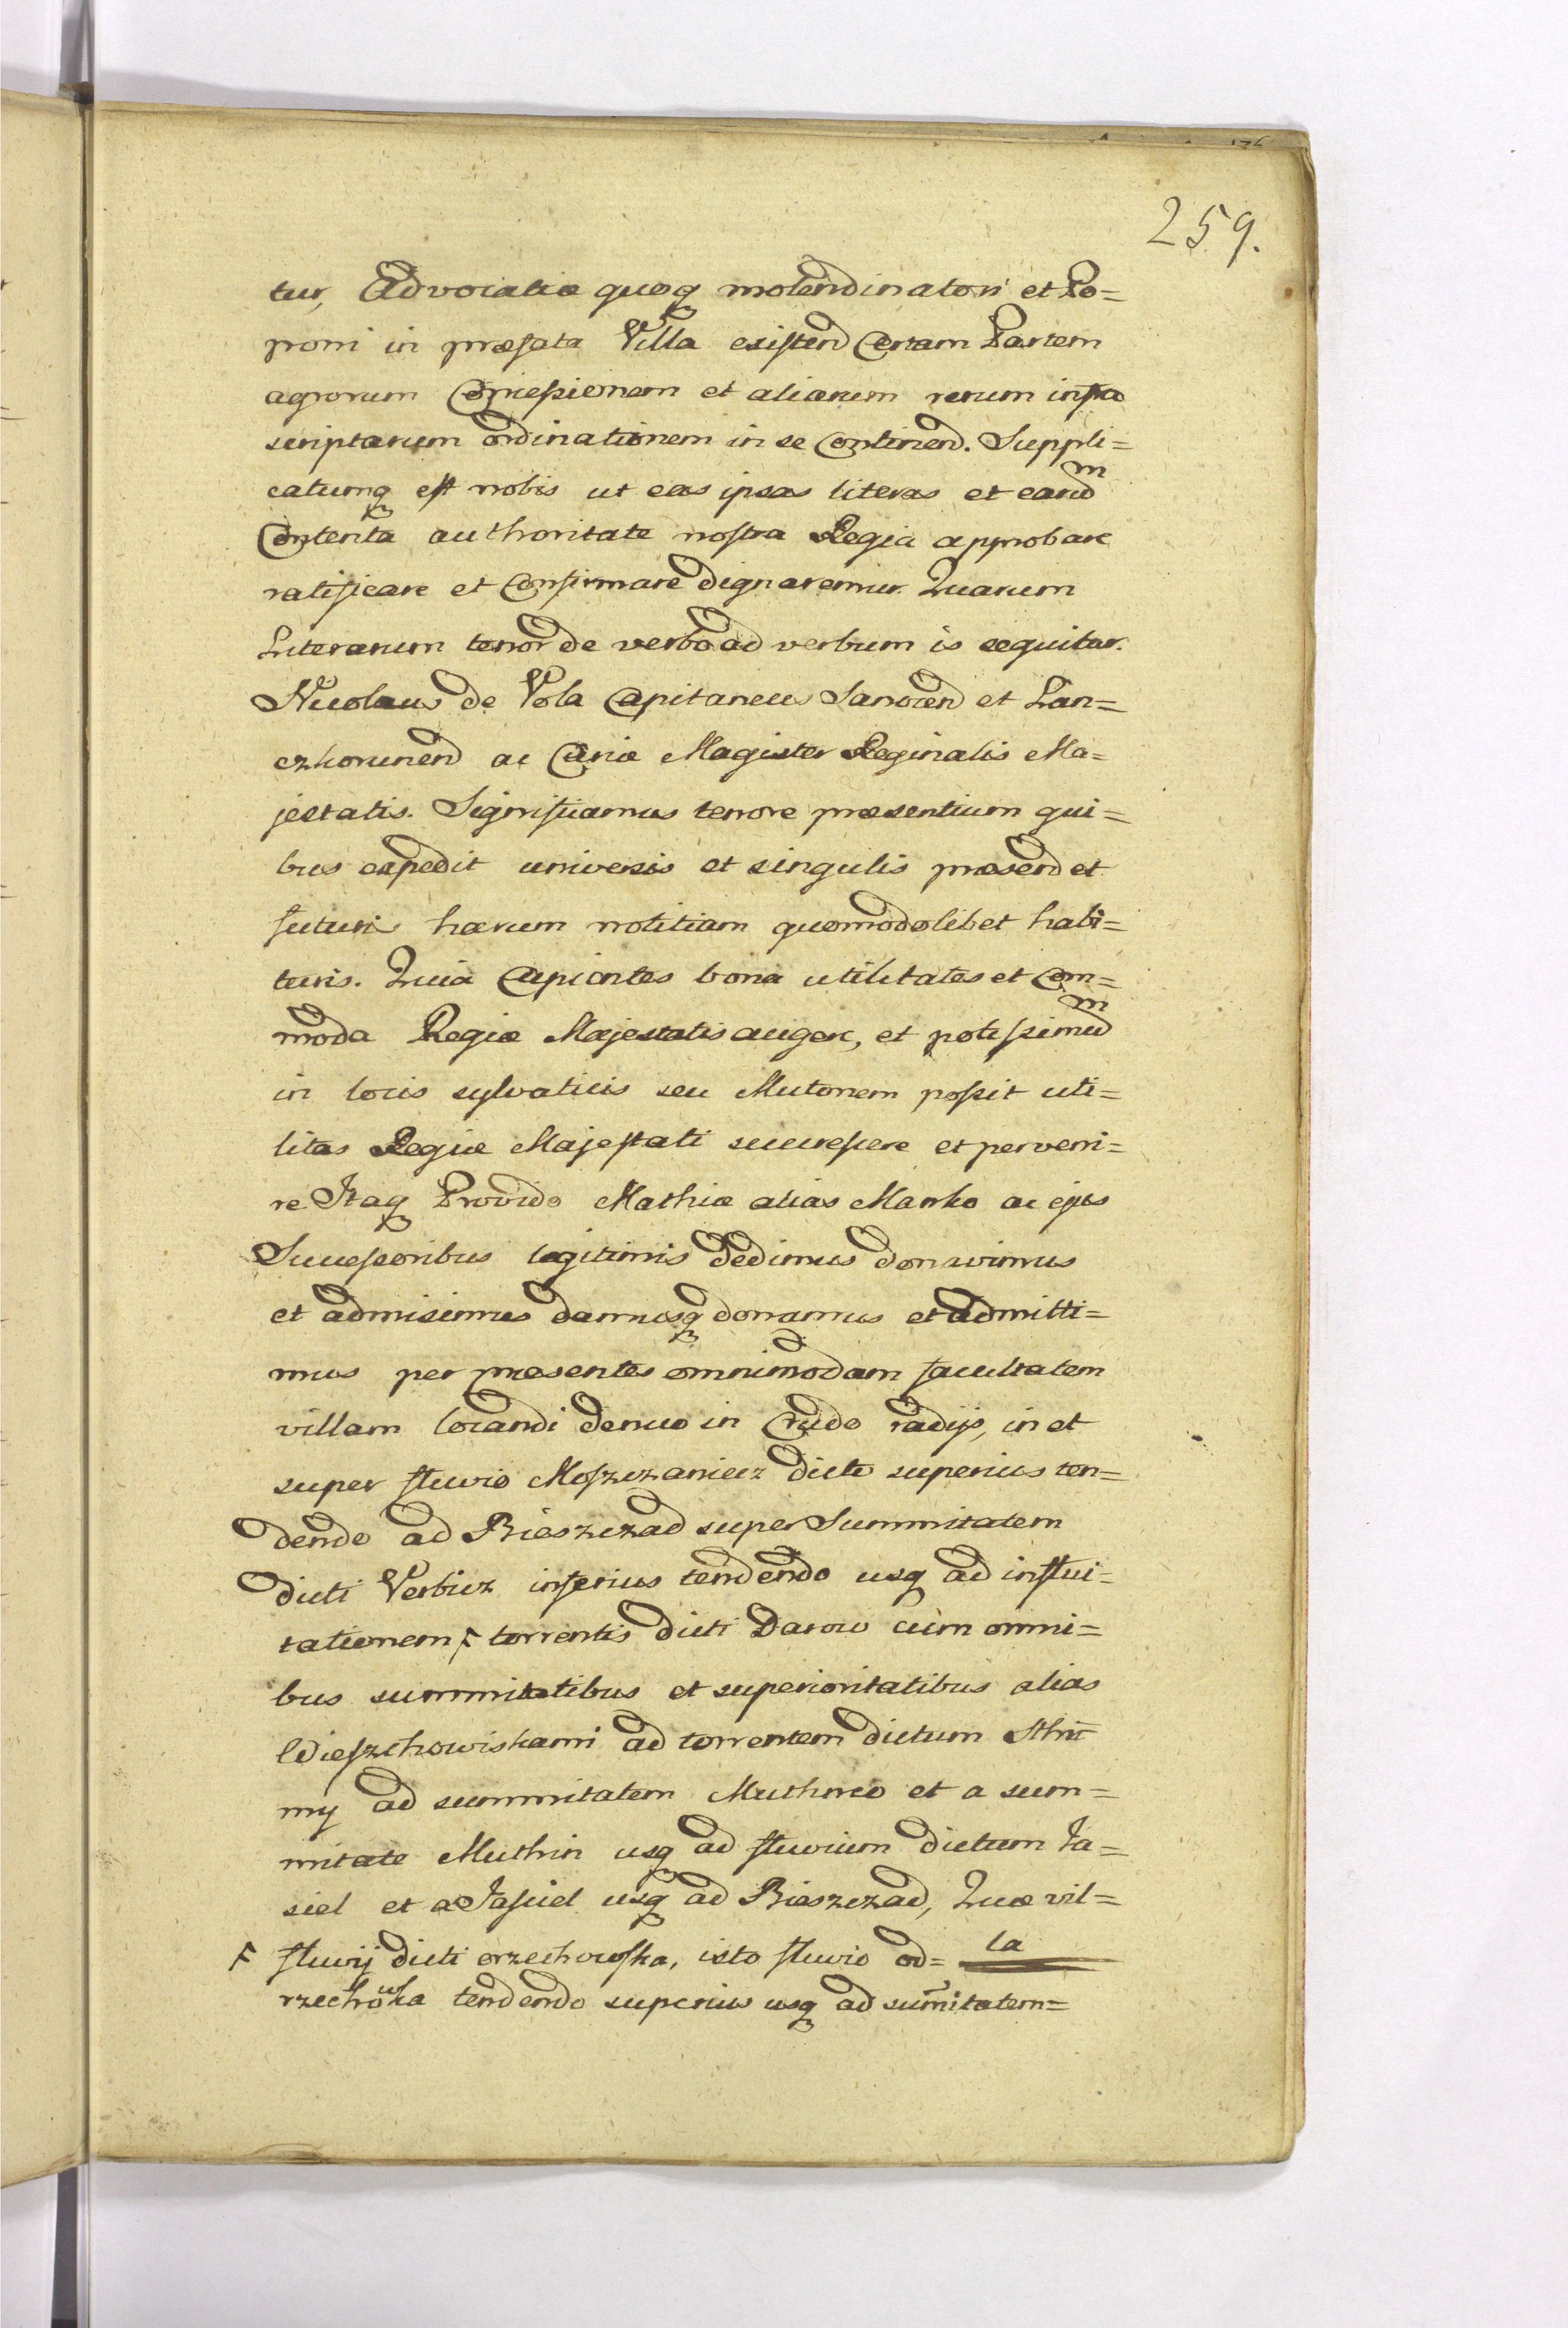 259.
tur, Advocatiæ quoq molendinatori et Po=
poni in præfata Villa existend Certam Partem
agrorum Concessionem et aliarum rerum infra
scriptarum ordinationem in se Continend. Suppli=
catumq est nobis ut eas ipsas literas et eand m
Contenta authoritate nostra Regia approbare
ratificare et Confirmare dignaremur. Quarum
Literarum tenor de verbo ad verbum is sequitur.
Nicolaus de Vola Capitaneus Sanocen et Lan=
czkorunend ac Curiæ Magister Reginalis Ma=
jestatis. Significamus tenore præsentium qui=
bus expedit universis et singulis præsend et
futuris harum notitiam quomodolibet habi=
turis. Quia Cupientes bona utilitates et Com=
moda Regiæ Majestatis augere, et potissimu m
in locis sylvaticis seu Mutonem possit uti=
litas Regiæ Majestati succrescere et perveni=
re Itaq Provido Mathiæ alias Manko ac ejus
Successoribus legitimis dedimus donavimus
et admisimus damusq donamus et admitti=
mus per præsentes omnimodam facultatem
villam locandi denuo in Crudo radijs, in et
super fluvio Moszczaniecz dicto superius ten=
dendo ad Bieszczad super Summitatem
dicti Verbicz inferius tendendo usq ad influi=
tationem F torrentis dicti Darow cum omni=
bus summitatibus et superioritatibus alias
Wieszchowiskami ad torrentem dictum Sthu
my ad summitatem Muthneo et a sum=
mitate Muthin usq ad fluvium dictum Ja=
siel et a Jasiel usq ad Bieszczad, Quæ vil=
la
F fluvij dicti orzechowska, isto fluvio od=
rzechowka tendendo superius usq ad sumitatem=